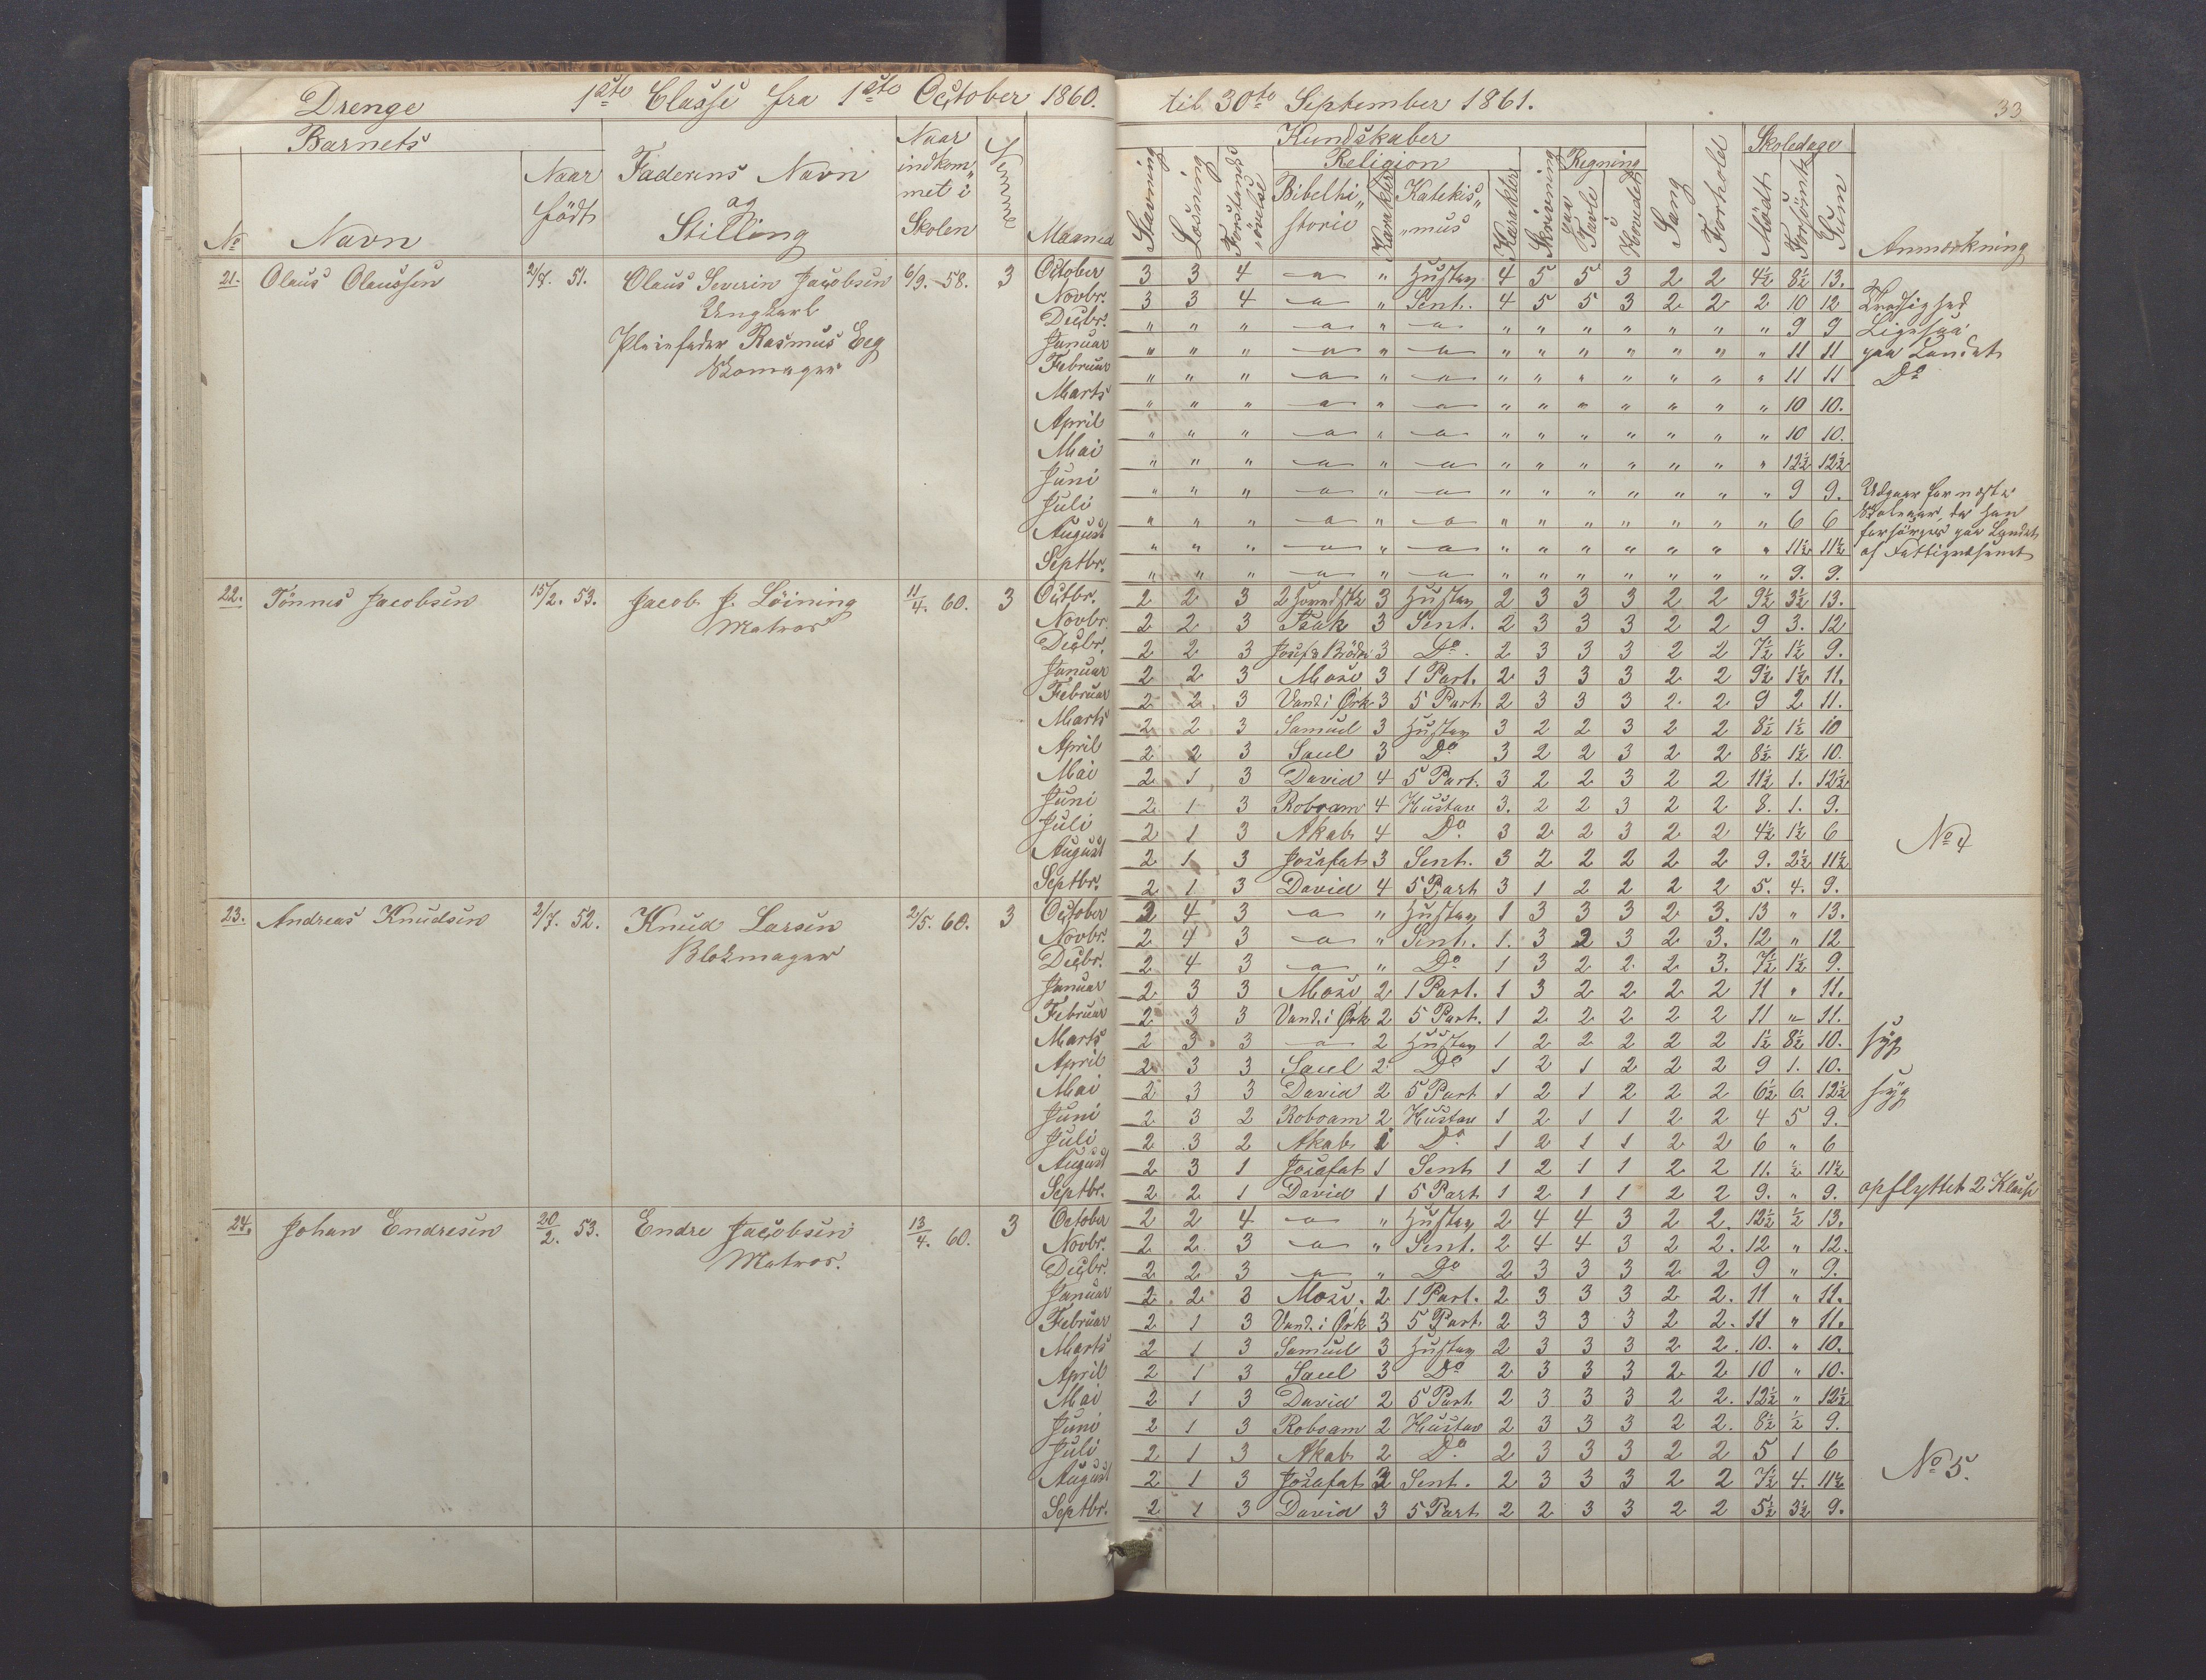 Drenge 1ste Classe fra 1ste October 1860. til 30te September 1861. 33
Barnets
No Navn Naar födt Faderens Navn og Stilling Naar indkom„met i Skolen Evne Maaned
Kundskaber
Religion Regning Skoledage
Stavning Læsning Forstands„övelse Bibelhi„storie Karakter Katekis„„mus Karakter Skrivning paa Tavle i Hovedet Sang Forhold Mödt Forsömt Sum Anmærkning
21. Olaus Olaussen 2/8. 51. Olaus Severin Jacobsen 6/9.-58. 3 October 3 3 4 „ „ Hustav 4 5 5 3 2 2 4½ 8½ 13.
Ungkarl Novbr. 3 3 4 „ „ Sent. 4 5 5 3 2 2 2 10 12
Pleiefader Rasmus Eeg Decbr. „ „ „ „ „ „ „ „ „ „ „ „ „ 9 9 Ligesaa
Skomager Januar „ „ „ „ „ „ „ „ „ „ „ „ „ 11 11 paa Landet
Februar „ „ „ „ „ „ „ „ „ „ „ „ „ 11 11 Do
Marts „ „ „ „ „ „ „ „ „ „ „ „ „ 10 10.
April „ „ „ „ „ „ „ „ „ „ „ „ „ 10 10.
Mai „ „ „ „ „ „ „ „ „ „ „ „ „ 12½ 12½
Juni „ „ „ „ „ „ „ „ „ „ „ „ „ 9 9. Udgaar for næste
Juli „ „ „ „ „ „ „ „ „ „ „ „ „ 6 6 Skoleaar, da han
August „ „ „ „ „ „ „ „ „ „ „ „ „ 11½ 11½ forsörges paa Landet
Septbr. „ „ „ „ „ „ „ „ „ „ „ „ „ 9. 9. af Fattigvæsenet
22. Tönnes Jacobsen 15/2. 53. Jacob J. Löining 11/4. 60. 3 Octbr. 2 2 3 3 Hustav 2 3 3 3 2 2 9½ 3½ 13.
Matros Novbr. 2 2 3 Isak 3 Sent. 2 3 3 3 2 2 9 3. 12
Decbr. 2 2 3 Josef & Brödre 3 Do. 2 3 3 3 2 2 7½ 1½ 9.
Januar 2 2 3 Mose 3 1 Part. 2 3 3 3 2 2 9½ 1½ 11.
Februar 2 2 3 Vand. i Örk 3 5 Part 2 3 3 3 2 2 9 2 11.
Marts 2 2 3 Samuel 3 Hustav 3 2 2 3 2 2 8½ 1½ 10
April 2 2 3 Saul 3 Do 3 2 2 3 2 2 8½ 1½ 10.
Mai 2 1 3 David 4 5 Part. 3 2 2 3 2 2 11½ 1. 12½
Juni 2 1 3 Roboam 4 Hustav 3. 2 2 3 2 2 8. 1. 9.
Juli 2 1 3 Akab 4 Do. 3 2 2 3 2 2 4½ 1½ 6 No 4
August 2 1 3 Josafat 3 Sent. 3 2 2 2 2 2 9. 2½ 11½
Septbr. 2 1 3 David 4 5 Part 3 1 2 2 2 2 5. 4. 9.
23. Andreas Knudsen 2/7. 52. Knud Larsen 2/5. 60. 3 October 2 4 3 „ „ Hustav 1 3 3 3 2 3. 13 „ 13.
Blokmager Novbr. 2 4 3 „ „ Sent. 1. 3 2 3 2 3. 12 „ 12
Decbr. 2 4 3 „ „ Do 1 3 2 2 2 3. 7½ 1½ 9.
Januar 2 3 3 Mose 2 1 Part. 1 3 2 2 2 2 11 „ 11.
Februar 2 3 3 Vand. i Örk 2 5 Part. 1 2 2 2 2 2 11 „ 11.
Marts 2 3 3 „ 2 Hustav 1 2 2 2 2 2 1½ 8½ 10. syg
April 2 3 3 Saul 2 Do 1 2 1 2 2 2 9 1. 10.
Mai 2 3 3 David 2 5 Part 1 2 1 2 2 2 6½ 6. 12½ syg
Juni 2 3 2 Roboam 2 Hustav 1 2 1 1 2 2 4 5 9.
Juli 2 3 2 Akab 1 Do. 1 2 1 1 2 2 6 „ 6
August 2 3 1 Josafat 1 Sent 1 2 1 1 2 2 11. ½ 11½
Septbr. 2 2 1 David 1 5 Part 1 2 1 1 2 2 9. „ 9. opflyttet 2 Klasse
24. Johan Endresen 20/2. 53. Endre Jacobsen 13/4. 60. 3 October 2 2 4 „ „ Hustav 2 4 4 3 2 2. 12½ ½ 13.
Matros. Novbr. 2 2 3 „ „ Sent. 2 4 4 3 2 2. 12 „ 12.
Decbr. 2 2 3 „ „ Do 2 3 3 3 2 2 9 „ 9.
Januar 2 2 3 Mose. 2 1 Part. 2 3 3 3 2 2. 11 „ 11.
Februar 2 1 3 Vand. i Örk 3 5 Part. 2 3 3 3 2 2. 11 „ 11.
Marts 2 1 3 Samuel 3 Hustav 2 3 3 3 2 2. 10. „ 10.
April 2 1 3 Saul 3 Do 2 3 3 3 2 2 10 „ 10.
Mai 2 1 3 David 2 5 Part. 2 3 3 3 2 2. 12½ „ 12½
Juni 2 1 3 Roboam 2 Hustav 2 3 3 3 2 2. 8½ ½ 9.
Juli 2 1 3 Akab 2 Do. 2 3 3 3 2 2 5 1 6 No 5.
August 2 1 3 Josafat 2 Sent. 2 3 3 3 2 2 7½ 4. 11½
Septbr. 2 1 3 David 3 5 Part 2 2 3 3 2 2 5½ 3½ 9.